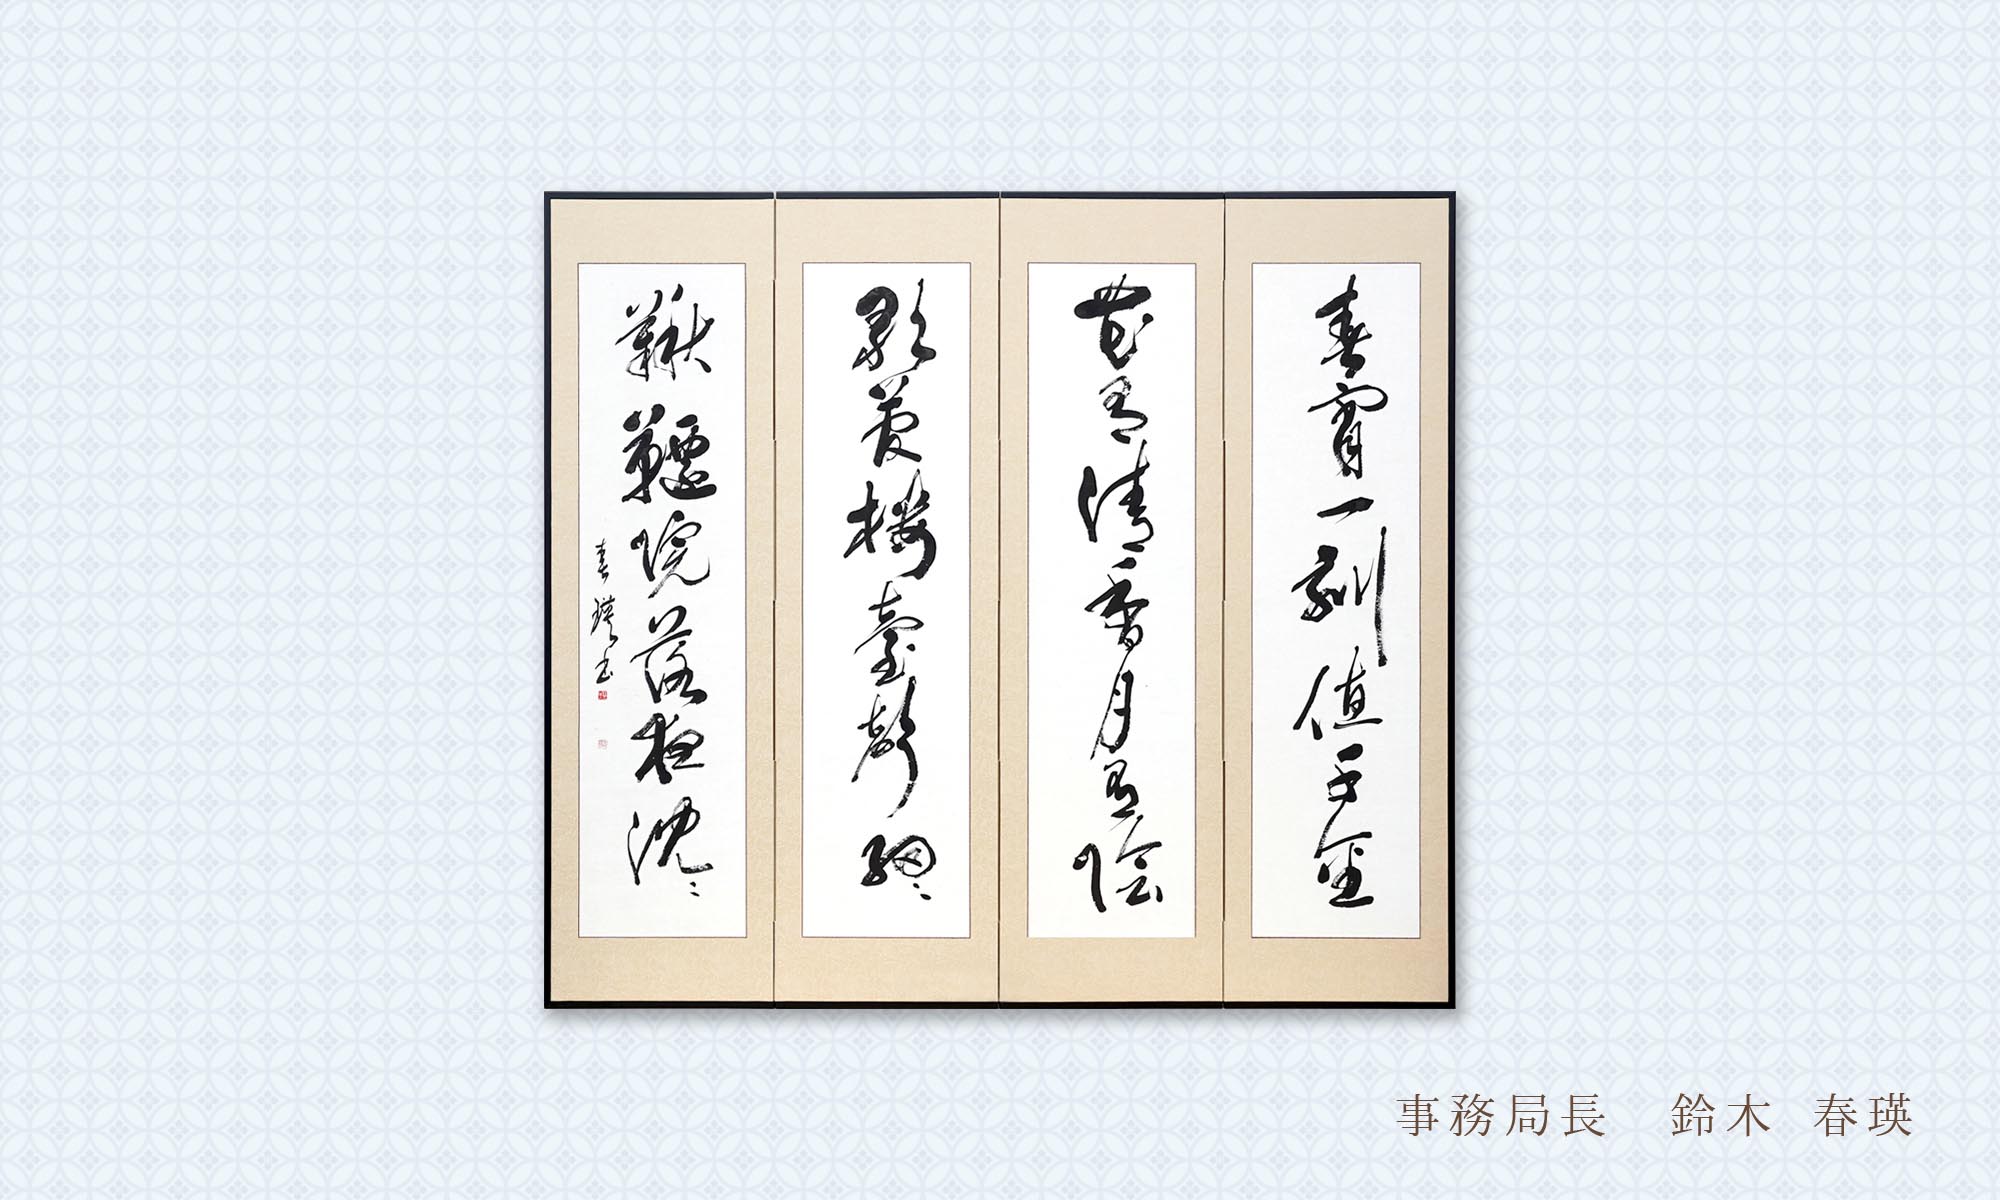 春宵一刻値千金
花有清香月有陰
歌管樓臺聲細〻
鞦韆院落夜沈〻
春瑛書
事務局長　鈴木　春瑛